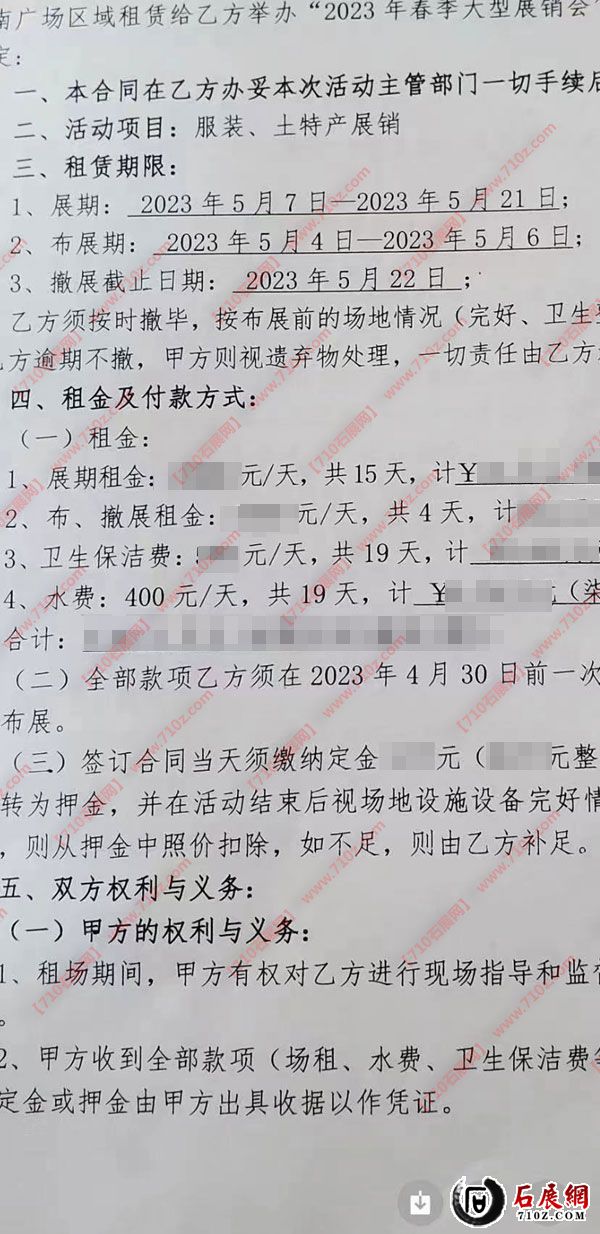 南广场区域租赁给乙方举办“2023年春季大型展销会”
定：
一、本合同在乙方办妥本次活动主管部门一切手续后
二、活动项目：服装、土特产展销
三、租赁期限：
1、展期：2023年5月7日—2023年5月21日；
2、布展期：2023年5月4日—2023年5月6日；
3、撤展截止日期：2023年5月22日；
乙方须按时撤毕，按布展前的场地情况（完好、卫生整
乙方逾期不撤，甲方则视遗弃物处理，一切责任由乙方
四、租金及付款方式：
（一）租金：
1、展期租金： 元/天，共15天，计¥
2、布、撤展租金： 元/天，共4天，计
3、卫生保洁费： 元/天，共19天，计
4、水费：400元/天，共19天，计 ¥ （柒
合计：
（二）全部款项乙方须在2023年4月30日前一次
布展。
（三）签订合同当天须缴纳定金 元（ 元整
转为押金，并在活动结束后视场地设施设备完好情
，则从押金中照价扣除，如不足，则由乙方补足。
五、双方权利与义务：
（一）甲方的权利与义务：
1、租场期间，甲方有权对乙方进行现场指导和监督
。
2、甲方收到全部款项（场租、水费、卫生保洁费等
定金或押金由甲方出具收据以作凭证。
【710石展网】www.710z.com
石展網
710z.com